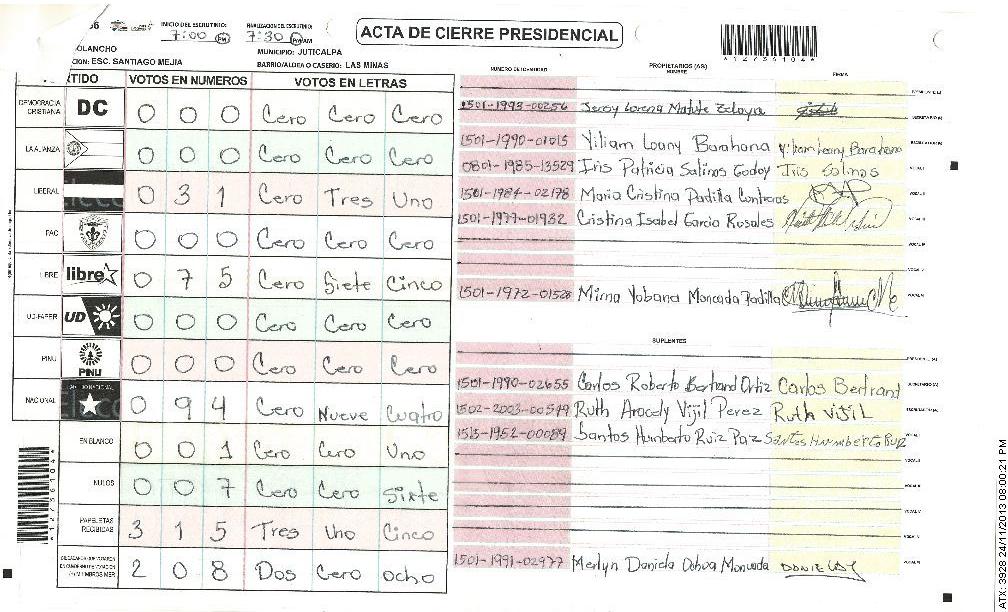 INICIO DEL ESCRUTINIO: 7:00 PM
FINALIZACION DEL ESCRUTINIO: 7:30 PM
ACTA DE CIERRE PRESIDENCIAL
OLANCHO
MUNICIPIO: JUTICALPA
CION: ESC. SANTIAGO MEJIA
BARRIO/ALDEA O CASERIO: LAS MINAS
TIDO VOTOS EN NUMEROS VOTOS EN LETRAS
DEMOCRACIA CRISTIANA DC 0 0 0 Cero Cero Cero
LA ALIANZA 0 0 0 Cero Cero Cero
LIBERAL 0 3 1 Cero Tres Uno
PAC 0 0 0 Cero Cero Cero
LIBRE libre 0 7 5 Cero Siete Cinco
UD-FAPER UD 0 0 0 Cero Cero Cero
PINU PINU 0 0 0 Cero Cero Cero
NACIONAL 0 9 4 Cero Nueve Cuatro
EN BLANCO 0 0 1 Cero Cero Uno
NULOS 0 0 7 Cero Cero Siete
PAPELETAS RECIBIDAS 3 1 5 Tres Uno Cinco
2 0 8 Dos Cero ocho
NUMERO DE IDENTIDAD
PROPIETARIOS (AS)
NOMBRE
FIRMA
1501-1993-00256
1501-1990-01015 Yiliam Loany Barahona Yiliam Loany Barahona
0801-1985-13529 Iris Patricia Salinas Godoy Iris Salinas
1501-1984-02178 Maria Cristina Padilla Contreras
1501-1977-01982 Cristina Isabel Garcia Rosales
1501-1972-01528 Mirna Yobana Moncada Padilla
SUPLENTES
1501-1990-02655 Carlos Roberto Bertrand Ortiz Carlos Bertrand
1502-2003-00599 Ruth Aracely Vijil Perez Ruth Vijil
1515-1952-00089 Santos Humberto Ruiz Paz Santos Humberto Ruiz
1501-1991-02977 Merlyn Daniela Ochoa Moncada
ATX: 3928 24/11/2013 08:00:21 PM